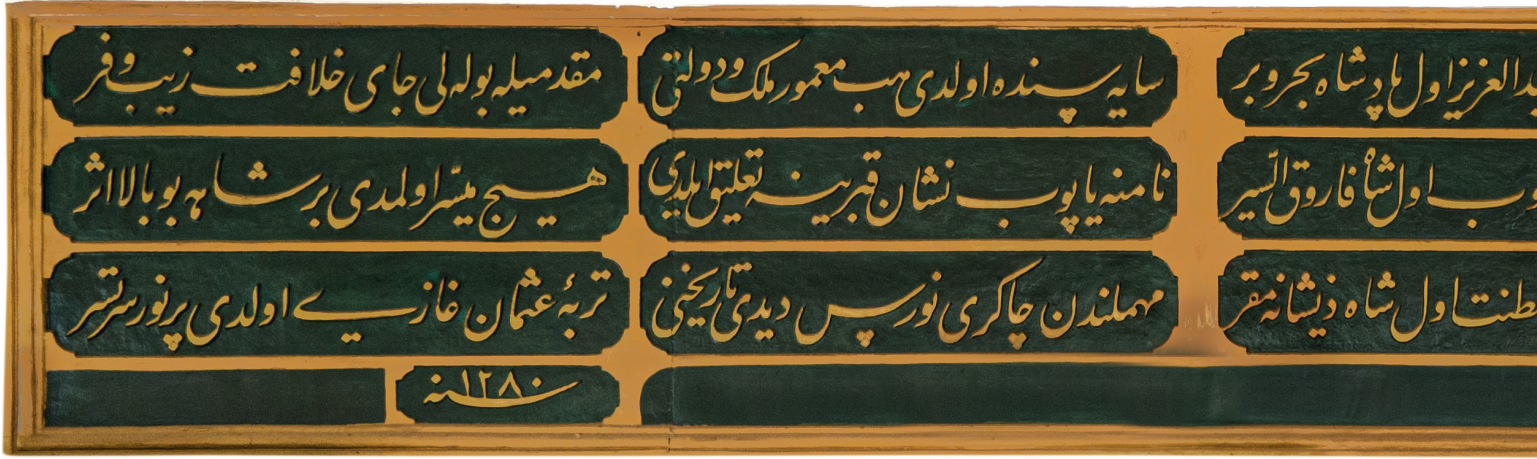 ‌دالعزیز اول پادشاه بحر و بر سایه سنده اولدی هپ معمور ملك و دولتی مقدمیله بوله لی جای خلافت زیب و فر
وب اول شاه فاروق السیر نامنه یاپوب نشان قبرینه تعلیق ایلدی هیچ میسّر اولمدی بر شاهه بو بالا اثر
طنت اول شاه ذیشانه مقر مهملندن چاکری نورس دیدی تاریخنی تربۀ عثمان غازی اولدی پرنور سرتسر
سنه ۱۲۸۰